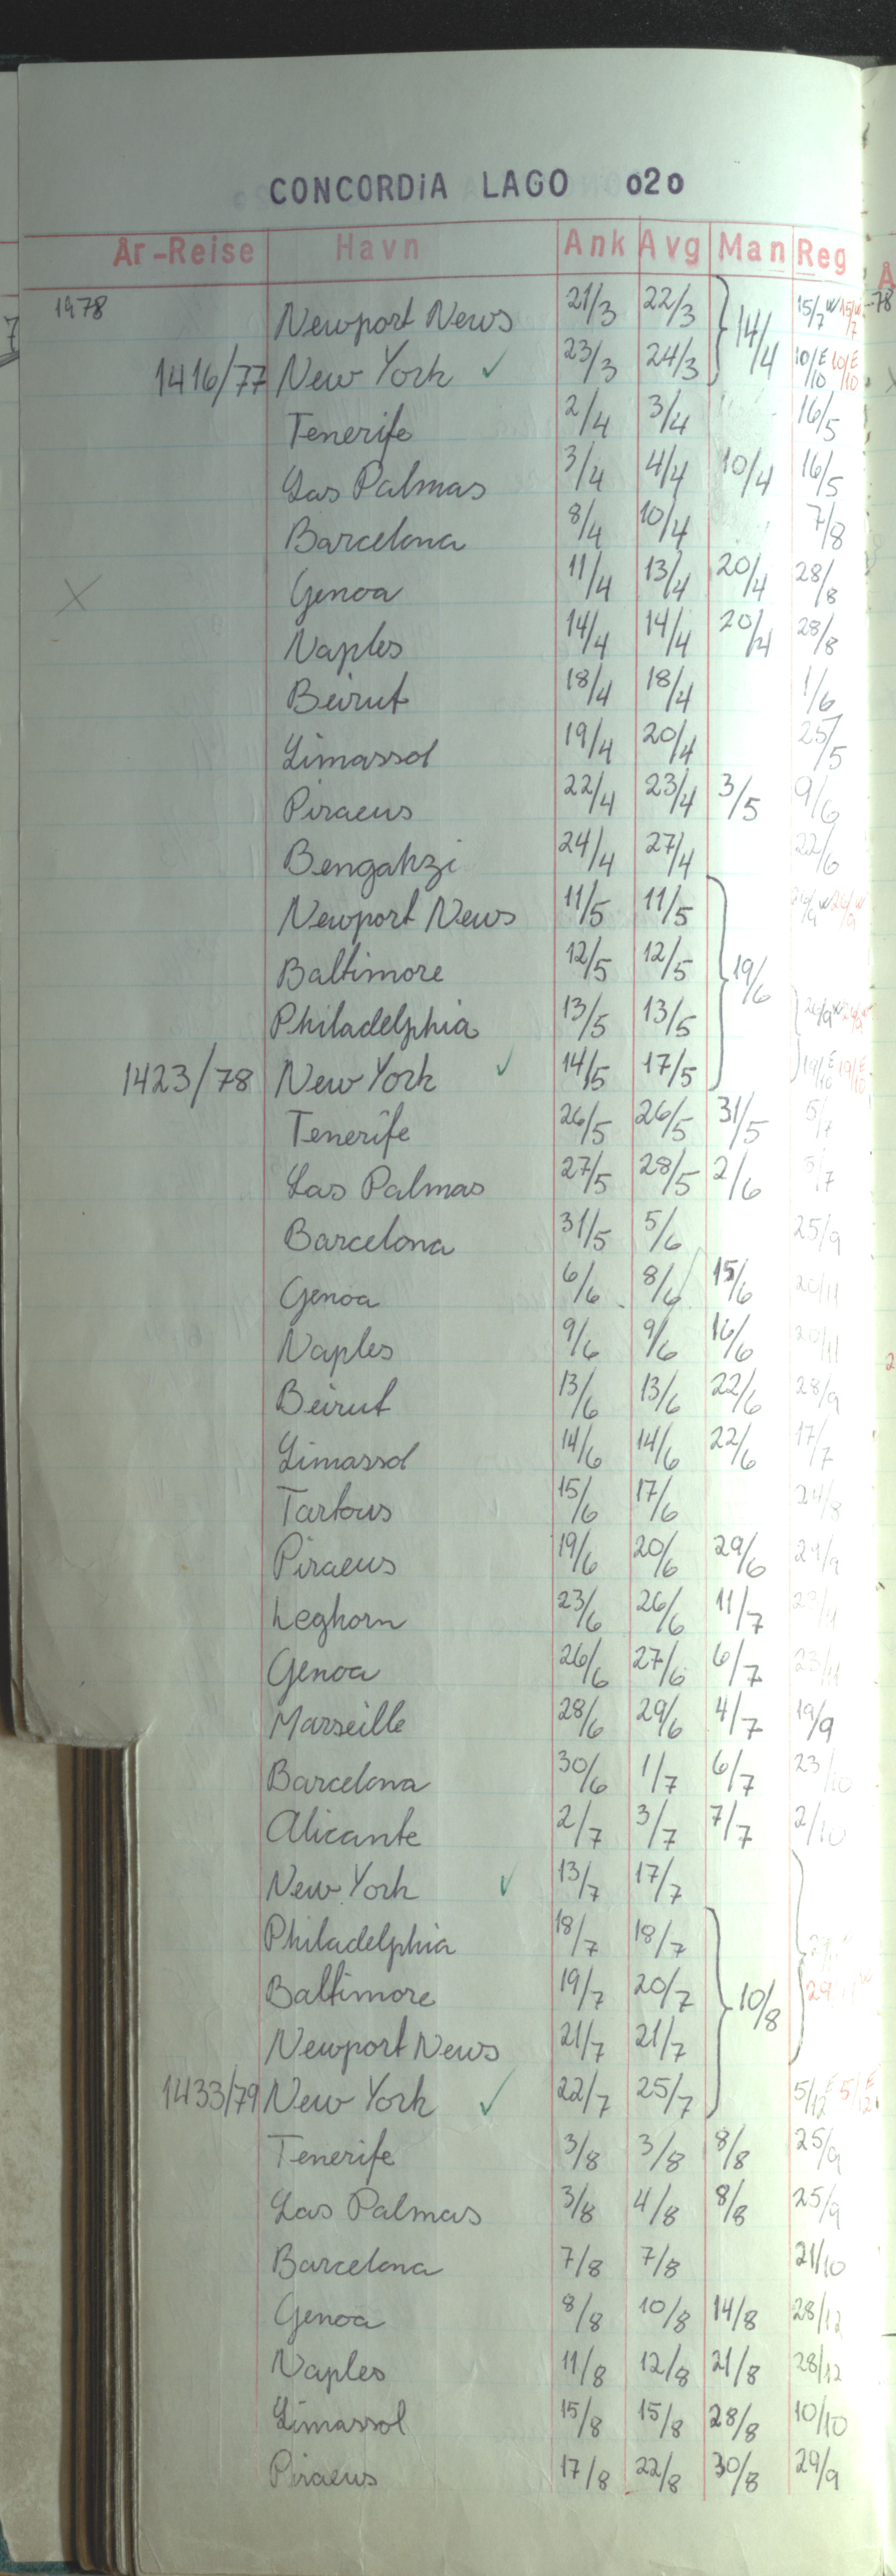 CONCORDiA LAGO 020
År-Reise Havn Ank Avg Man Reg
1978 Newport News 21/3 22/3 14/4 15/7 W 15/7 W
1416/77 New York ✓ 23/3 24/3 10/10 E 10/10 E
Tenerife 2/4 3/4 16/5
Las Palmas 3/4 4/4 10/4 16/5
Barcelona 8/4 10/4 7/8
X Genoa 11/4 13/4 20/4 28/8
Naples 14/4 14/4 20/4 28/8
Beirut 18/4 18/4 1/6
Limassol 19/4 20/4 25/5
Piraeus 22/4 23/4 3/5 9/6
Bengahzi 24/4 27/4 22/6
Newport News 11/5 11/5 26/9 W 26/9 W
Baltimore 12/5 12/5 19/6
Philadelphia 13/5 13/5 26/9 W 26/9 W
1423/78 New York ✓ 14/5 17/5 19/10 E 19/10 E
Tenerife 26/5 26/5 31/5 5/7
Las Palmas 27/5 28/5 2/6 5/7
Barcelona 31/5 5/6 25/9
Genoa 6/6 8/6 15/6 20/11
Naples 9/6 9/6 16/6 20/11
Beirut 13/6 13/6 22/6 28/9
Limassol 14/6 14/6 22/6 17/7
Tartous 15/6 17/6 24/8
Piraeus 19/6 20/6 29/6 29/9
Leghorn 23/6 26/6 11/7
Genoa 26/6 27/6 6/7 23/11
Marseille 28/6 29/6 4/7 19/9
Barcelona 30/6 1/7 6/7 23/10
Alicante 2/7 3/7 7/7 2/10
New York ✓ 13/7 17/7
Philadelphia 18/7 18/7
Baltimore 19/7 20/7 10/8
Newport News 21/7 21/7
1433/79 New York ✓ 22/7 25/7 5/12 E 5/12 E
Tenerife 3/8 3/8 8/8 25/9
Las Palmas 3/8 4/8 8/8 25/9
Barcelona 7/8 7/8 21/10
Genoa 8/8 10/8 14/8 28/12
Naples 11/8 12/8 21/8 28/12
Limassol 15/8 15/8 28/8 10/10
Piraeus 17/8 22/8 30/8 29/9